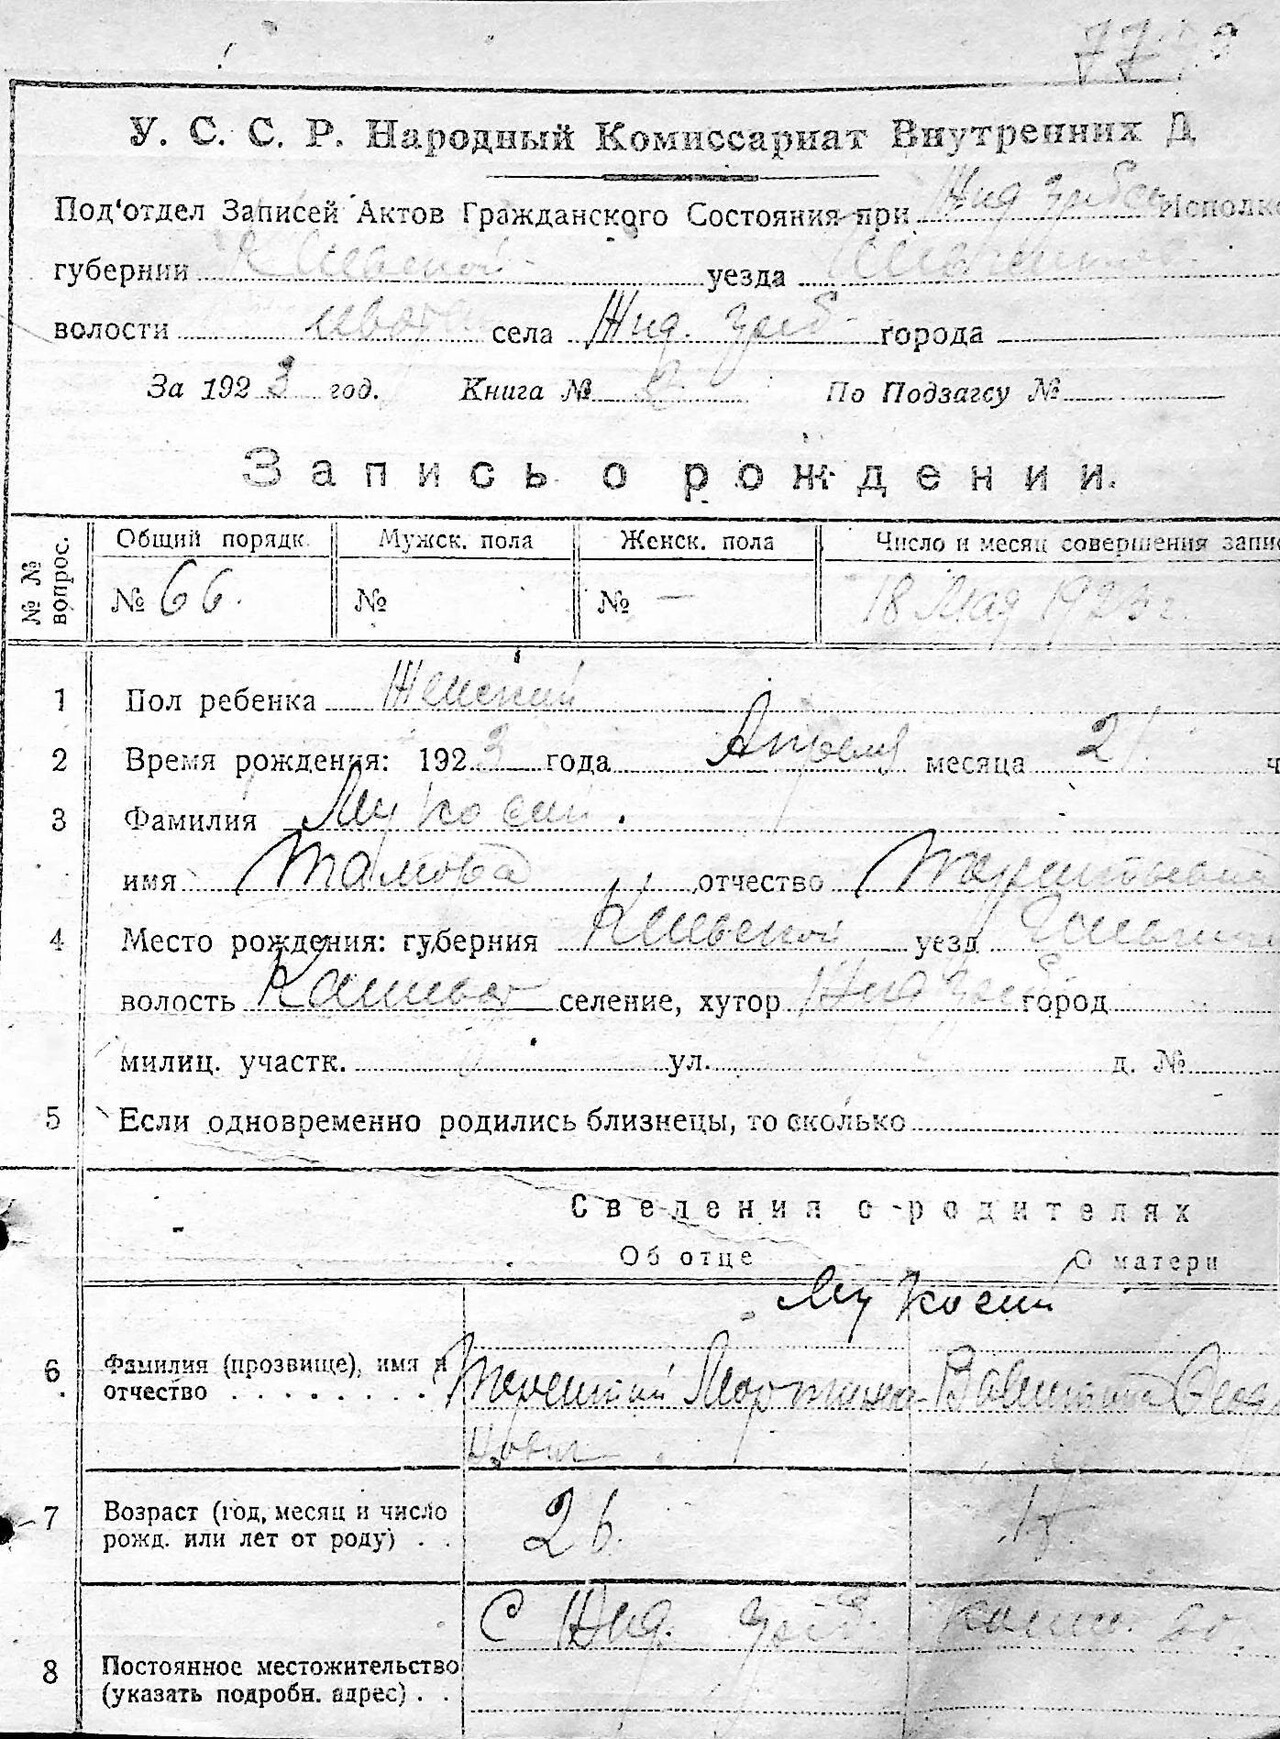 У. С. С. Р. Народный Комиссариат Внутренних Д
Под‘отдел Записей Актов Гражданского Состояния при Жид Гребел Исполко
губернии Киевской уезда
волости села Жид. Греб. города
За 1923 год. Книга № По Подзагсу №
Запись о рождении.
№ № вопрос.
Общий порядк. Мужск. пола Женск. пола Число и месяц совершения запис
№ 66. № № — 18 Мая 1923 г.
1 Пол ребенка Женский
2 Время рождения: 1923 года Апреля месяца 21 ч
3 Фамилия Мукосий.
имя Тамара отчество Терентьевна
4 Место рождения: губерния Киевской уезд
волость селение, хутор Жид Греб город
милиц. участк. ул. д. №
5 Если одновременно родились близнецы, то сколько
Сведения о родителях
Об отце О матери
Мукосий
6 Фамилия (прозвище), имя и Терентий Мартино- Валентина
отчество . . . . . . . . вич
7 Возраст (год, месяц и число 26. 18.
рожд. или лет от роду) . .
С Жид. Греб.
8 Постоянное местожительство
(указать подробн. адрес) . .